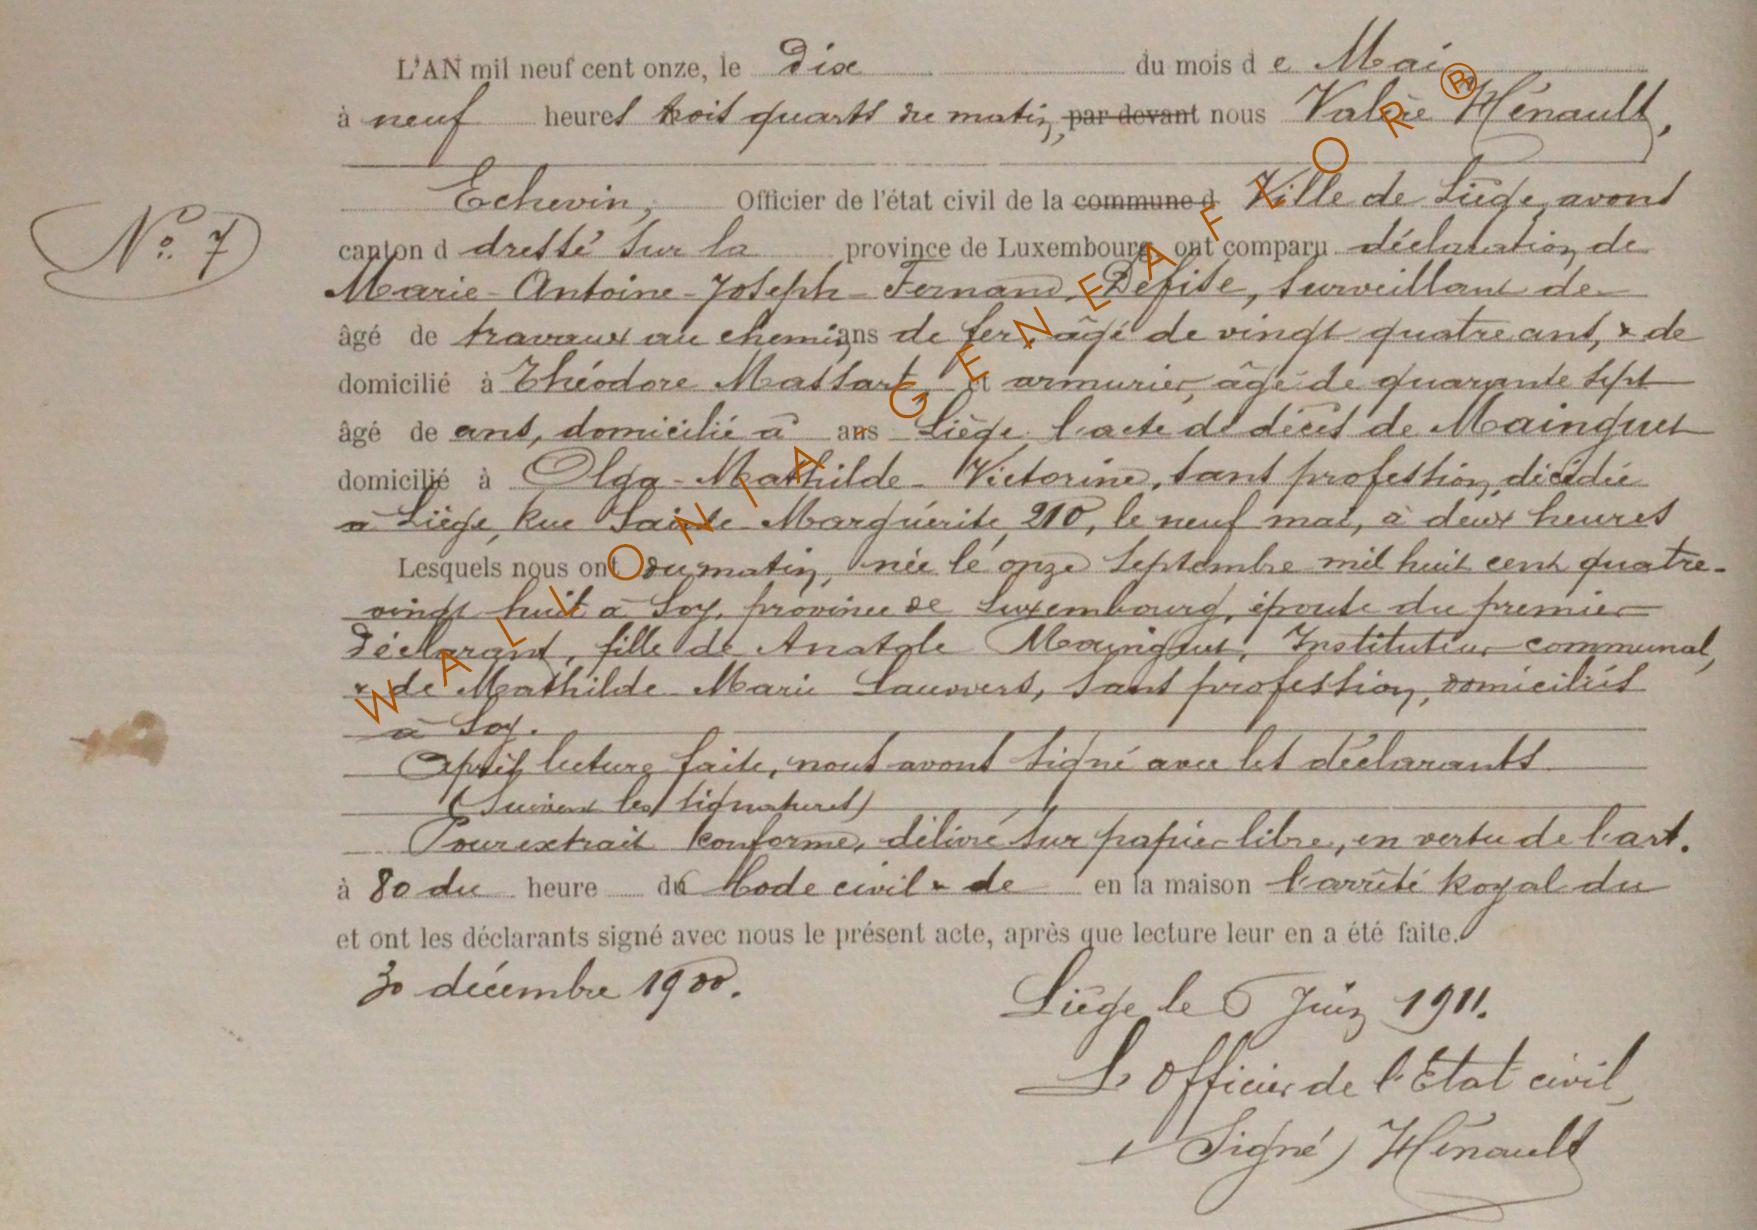 L'AN mil neuf cent onze, le Dix du mois d e Mai
à neuf heures trois quarts du matin, par devant nous Valère Hénault,
Echevin, Officier de l'état civil de la commune d Ville de Liège, avons
N° 7
canton d dressé sur la province de Luxembourg, ont comparu déclaration de
Marie-Antoine-Joseph-Fernand Defise, surveillant de
âgé de travaux au chemin ans de fer, âgé de vingt quatre ans, & de
domicilié à Théodore Massart, et armurier, âgé de quarante sept
âgé de ans, domicilié à ans Liège, l'acte de décès de Mainguet
domicilié à Olga-Mathilde-Victorine, sans profession, décédée
à Liège, rue Sainte Marguérite, 210, le neuf mai, à deux heures
Lesquels nous ont du matin, née le onze Septembre mil huit cent quatre-
vingt huit à Soy, province de Luxembourg, épouse du premier
Déclarant, fille de Anatole Mainguet, Instituteur communal,
& de Mathilde Marie Lauwers, sans profession, domiciliés
à Soy.
Après lecture faite, nous avons signé avec les déclarants
(Suivent les signatures)
Pour extrait conforme, délivré sur papier libre, en vertu de l'art.
à 80 du heure du Code civil & de en la maison l'arrêté royal du
et ont les déclarants signé avec nous le présent acte, après que lecture leur en a été faite.
30 décembre 1900.
Liège le 6 Juin 1911.
L'Officier de l'Etat civil,
(Signé) Hénault
WALLONIA - GENEAFLOR®